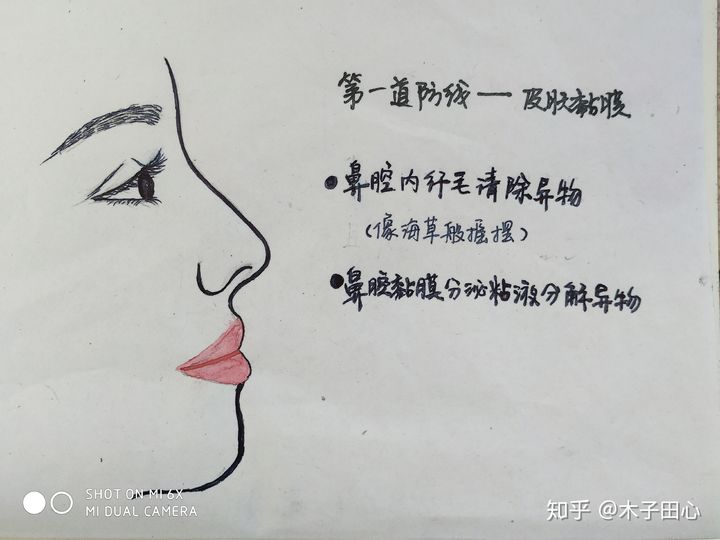 第一道防线一皮肤黏膜
●鼻腔内纤毛清除异物
(像海草般摇摆)
●鼻腔黏膜分泌粘液分解异物
SHOT ON MI 6X
MI DUAL CAMERA
知乎 @木子田心